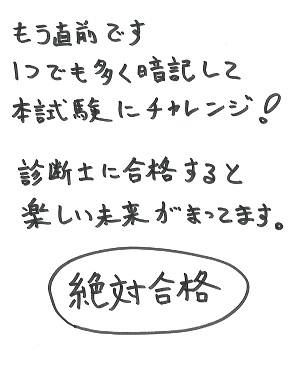 もう直前です
1つでも多く暗記して
本試験にチャレンジ!
診断士に合格すると
楽しい未来がまってます。
絶対合格